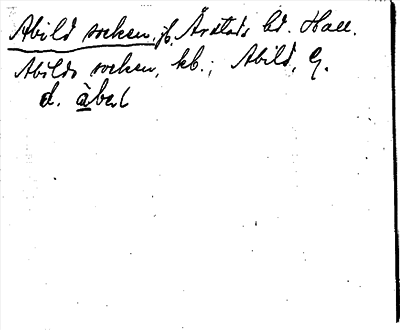 Abild socken, jb. Årstads hd. Hall.
Abilds socken, kb.; Abild, G.
d. àbeɩ